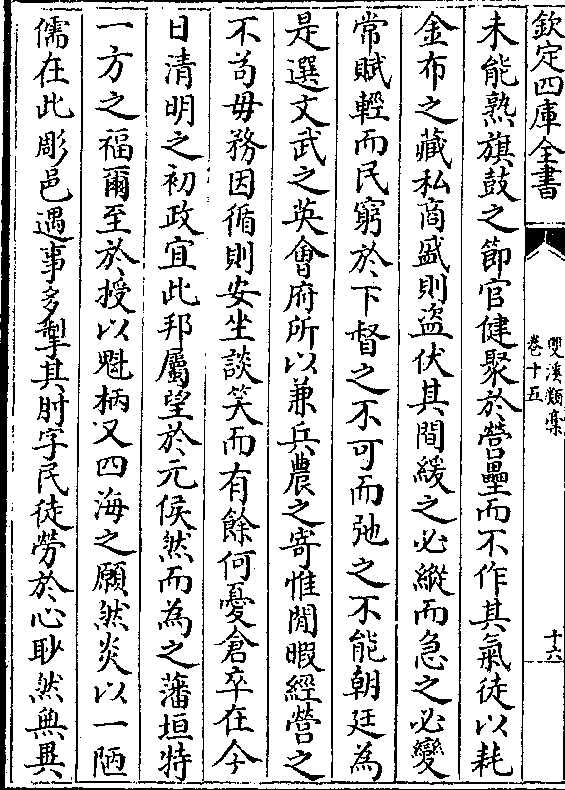 欽定四庫全書
雙溪類稾
卷十五
十六
未能熟旗鼓之節官健聚於營壘而不作其氣徒以耗
金布之藏私商盛則盗伏其間緩之必縱而急之必變
常賦輕而民窮於下督之不可而弛之不能朝廷為
是選文武之英會府所以兼兵農之寄惟閒暇經營之
不茍毋務因循則安坐談笑而有餘何憂倉卒在今
日清明之初政宜此邦屬望於元侯然而為之藩垣特
一方之福爾至於授以魁柄又四海之願然炎以一陋
儒在此彫邑遇事多掣其肘字民徒勞於心耿然無異